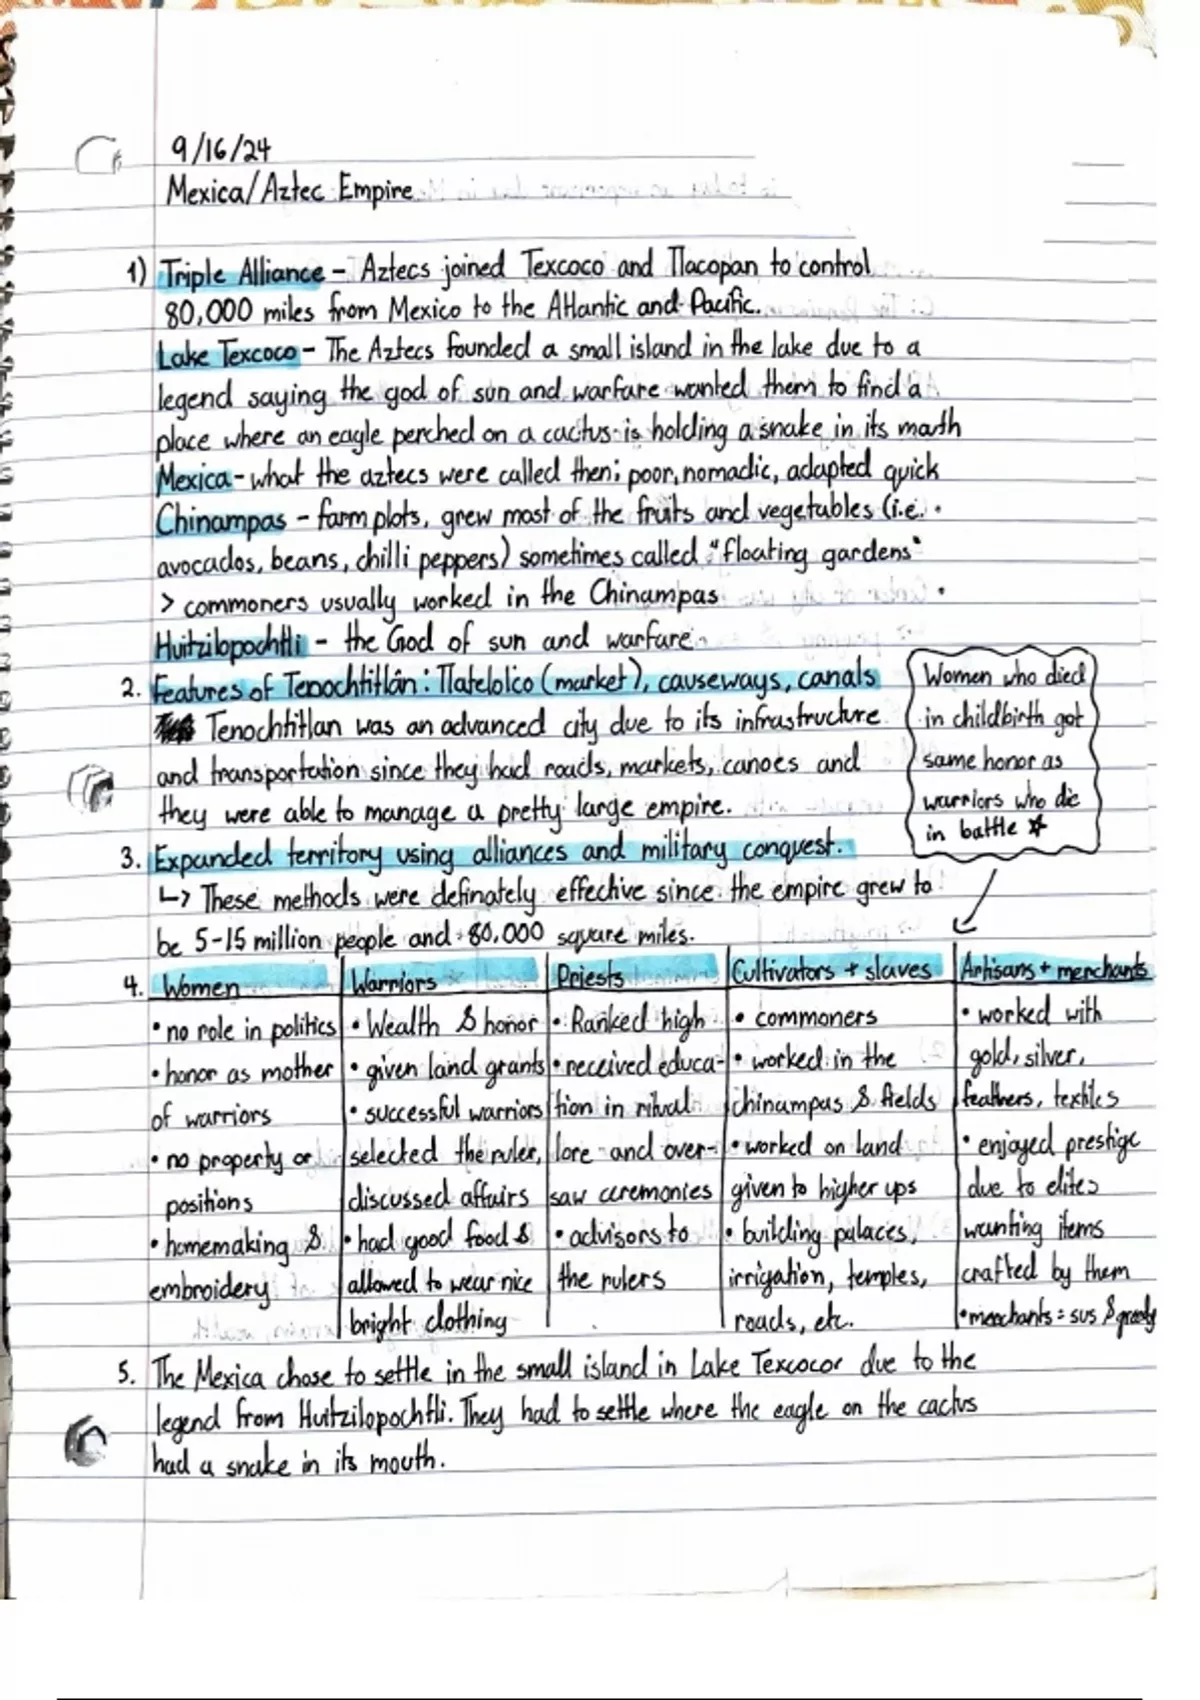 9/16/24
Mexica/Aztec Empire
1) Triple Alliance - Aztecs joined Texcoco and Tlacopan to control
80,000 miles from Mexico to the Atlantic and Pacific.
Lake Texcoco - The Aztecs founded a small island in the lake due to a
legend saying the god of sun and warfare wanted them to find a
place where an eagle perched on a cactus is holding a snake in its mouth
Mexica - what the aztecs were called then; poor, nomadic, adapted quick
Chinampas - farm plots, grew most of the fruits and vegetables (i.e.
avocados, beans, chilli peppers) sometimes called "floating gardens"
> commoners usually worked in the Chinampas
Huitzilopochtli - the God of sun and warfare
2. Features of Tenochtitlán: Tlatelolco (market), causeways, canals
Tenochtitlan was an advanced city due to its infrastructure
and transportation since they had roads, markets, canoes and
they were able to manage a pretty large empire.
Women who died
in childbirth got
same honor as
warriors who die
in battle ☆
3. Expanded territory using alliances and military conquest.
↳ These methods were definately effective since the empire grew to
be 5-15 million people and 80,000 square miles.
4. Women
• no role in politics
• honor as mother
of warriors
• no property or
positions
• homemaking &
embroidery
Warriors
• Wealth & honor
• given land grants
• successful warriors
selected the ruler,
discussed affairs
• had good food &
allowed to wear nice
bright clothing
Priests
• Ranked high
• received educa-
tion in ritual
lore and over-
saw ceremonies
• advisors to
the rulers
Cultivators + slaves
• commoners
• worked in the
chinampas & fields
• worked on land
given to higher ups
• building palaces,
irrigation, temples,
roads, etc.
Artisans + merchants
• worked with
gold, silver,
feathers, textiles
• enjoyed prestige
due to elites
wanting items
crafted by them
• merchants = sus & greedy
5. The Mexica chose to settle in the small island in Lake Texcocor due to the
legend from Huitzilopochtli. They had to settle where the eagle on the cactus
had a snake in its mouth.